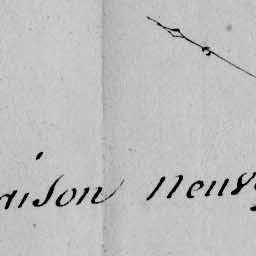 aison neuv